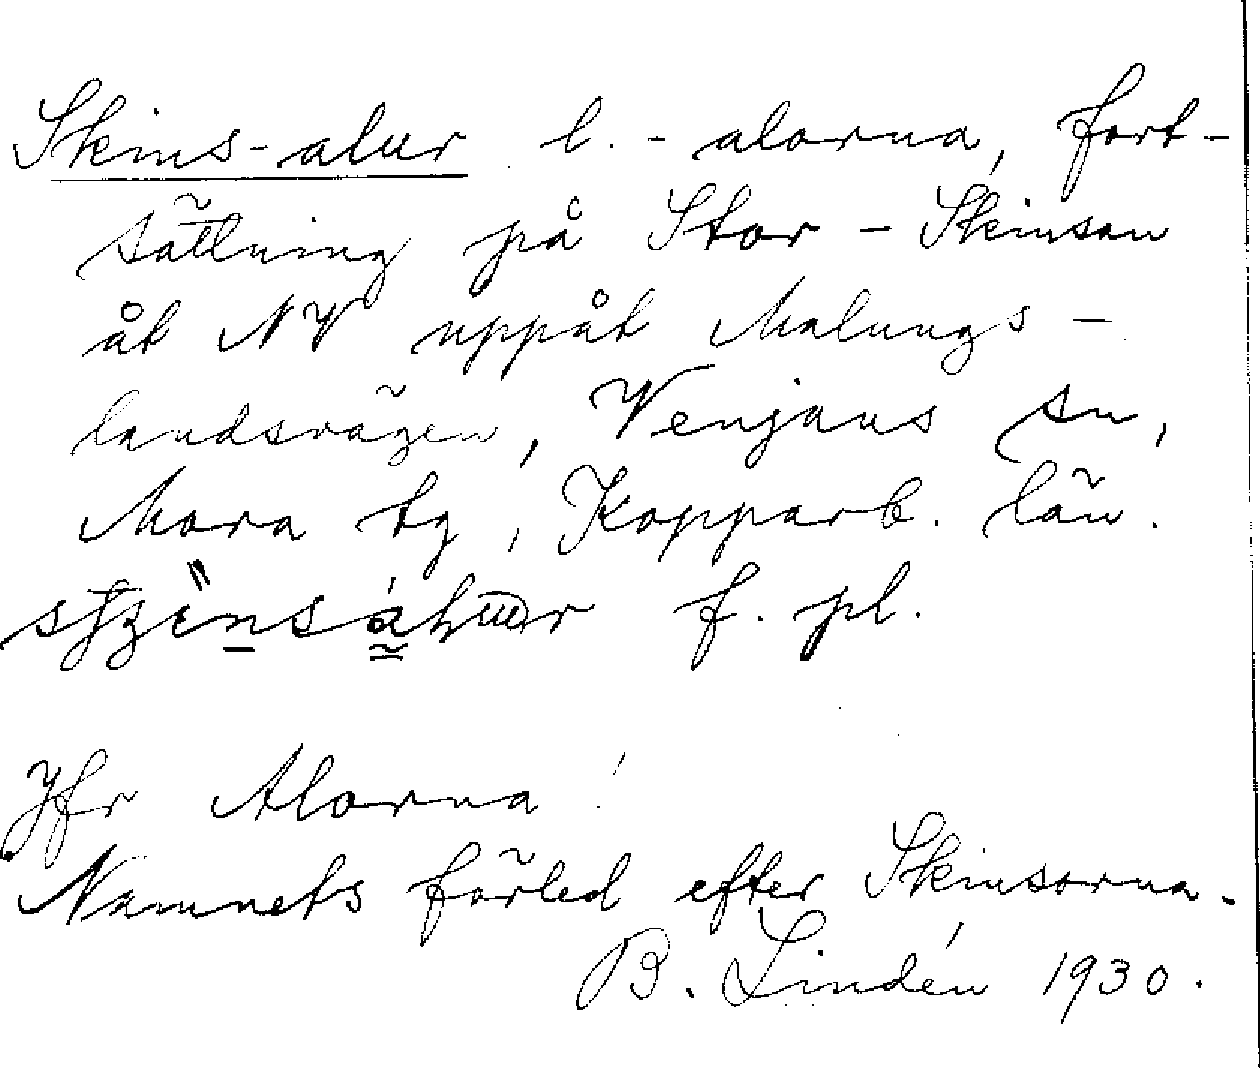 Skins-alur l. -alorna, fort-
sättning på Stor-Skinsen
åt NV uppåt Malungs-
landsvägen, Venjans sn,
Mora tg, Kopparb. län.
f. pl.
Jfr Alorna!
Namnets förled efter Skinsorna.
B. Lindén 1930.